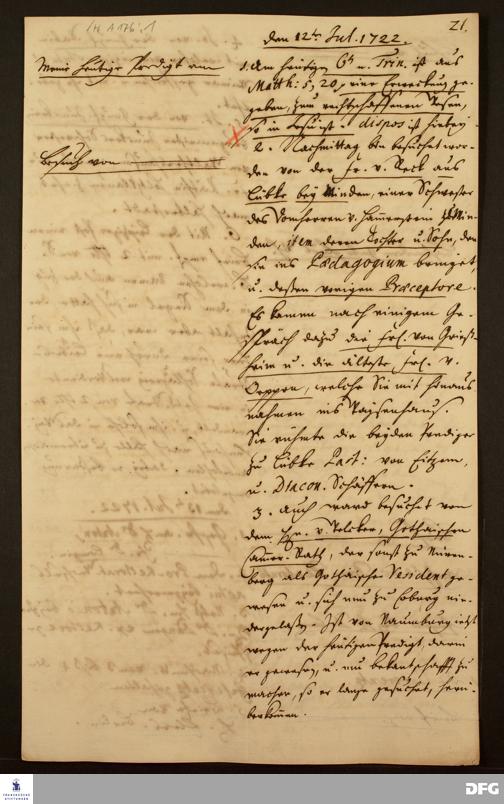 21.
den 12ten Jul. 1722.
Meine heutige Predigt am
1. Am heutigen 6t. n. Trin. ist aus
Matth: 5, 20, einer Erweckung ge-
geben, zum rechtschaffenen Wesen,
so in Jesu ist. dispos ist hiebey.
Besuch von
2. Nachmittag bin besuchet wor-
den von der Fr. v. Reck aus
Lübke bey Minden, einer Schwester
des Domherren v. Hammerstein zu Min-
den, item deren Tochter u. Sohn, den
sie ins Pædagogium bringet,
u. dessen vorigen Præceptore.
Es kamen nach einigem Ge-
spräch dazu die Frl. von Gries-
heim u. die älteste Frl. v.
Oeppen, welche Sie mit hinaus
nahmen ins Waysenhauß.
Sie rühmte die beyden Prediger
zu Lübke Past: von Eitzem,
u. Diacon. Schäffern.
3. Auch ward besuchet von
dem Hn. v. Gothaischen
Cammer-Rath, der sonst zu Nürn-
berg als Gothaischer Resident ge-
wesen u. sich nun zu Coburg nie-
dergelaßen. Ist von Naumburg jetzt
wegen der heutigen Predigt, darin
er gewesen, u. nur bekantschafft zu
machen, so er lange gesuchet, herü-
berkommen.
FRANCKESCHE
STIFTUNGEN
DFG